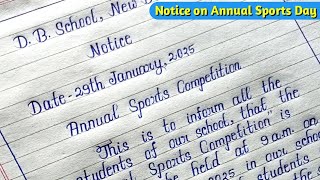 Notice on Annual Sports Day
D. B. School, New
Notice
Date:- 29th January, 2025
Annual Sports Competition
This is to inform all the
students of our school, that the
Sports Competition" is
be held at 9 a.m. on
2025 in our school
students